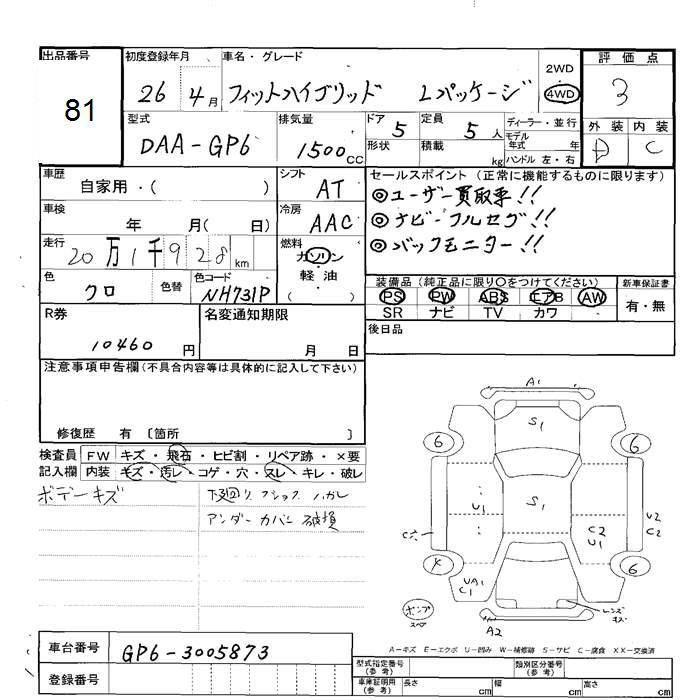 出品番号
81
初度登録年月
26 4月
車名・グレード
フィットハイブリッド Lパッケージ
2WD
4WD
評価点
3
外装 内装
D C
型式
DAA-GP6
排気量
1500cc
ドア 5
形状
定員 5人
積載 kg
ディーラー・並行
モデル
年式 年
ハンドル 左・右
車歴
自家用・( )
シフト
AT
車検
年 月( 日)
冷房
AAC
走行
20万1千928km
燃料
ガソリン
軽油
( )
色
クロ
色替
色コード
NH731P
セールスポイント (正常に機能するものに限ります)
◎ユーザー買取車!!
◎ナビ-フルセグ!!
◎バックモニター!!
装備品(純正品に限り○をつけてください)
PS PW ABS エアB AW
SR ナビ TV カワ
新車保証書
有・無
後日品
R券
10460円
名変通知期限
月 日
注意事項申告欄(不具合内容等は具体的に記入して下さい)
修復歴 有 〔箇所 〕
検査員 FW キズ・飛石・ヒビ割・リペア跡・×要
記入欄 内装 キズ・汚レ・コゲ・穴・スレ・キレ・破レ
ボデーキズ
下廻り フショク ハガレ
アンダーカバー 破損
A1
S1
6
6
U1
S1
C2
U1
U2
C2
UA1
C1
6
A2
レンズ
キズ
A-キズ E-エクボ U-凹み W-補修跡 S-サビ C-腐食 XX-交換済
車台番号
GP6-3005873
登録番号
型式指定番号
(参考)
類別区分番号
(参考)
車庫証明用
(参考)
長さ cm
幅 cm
高さ cm